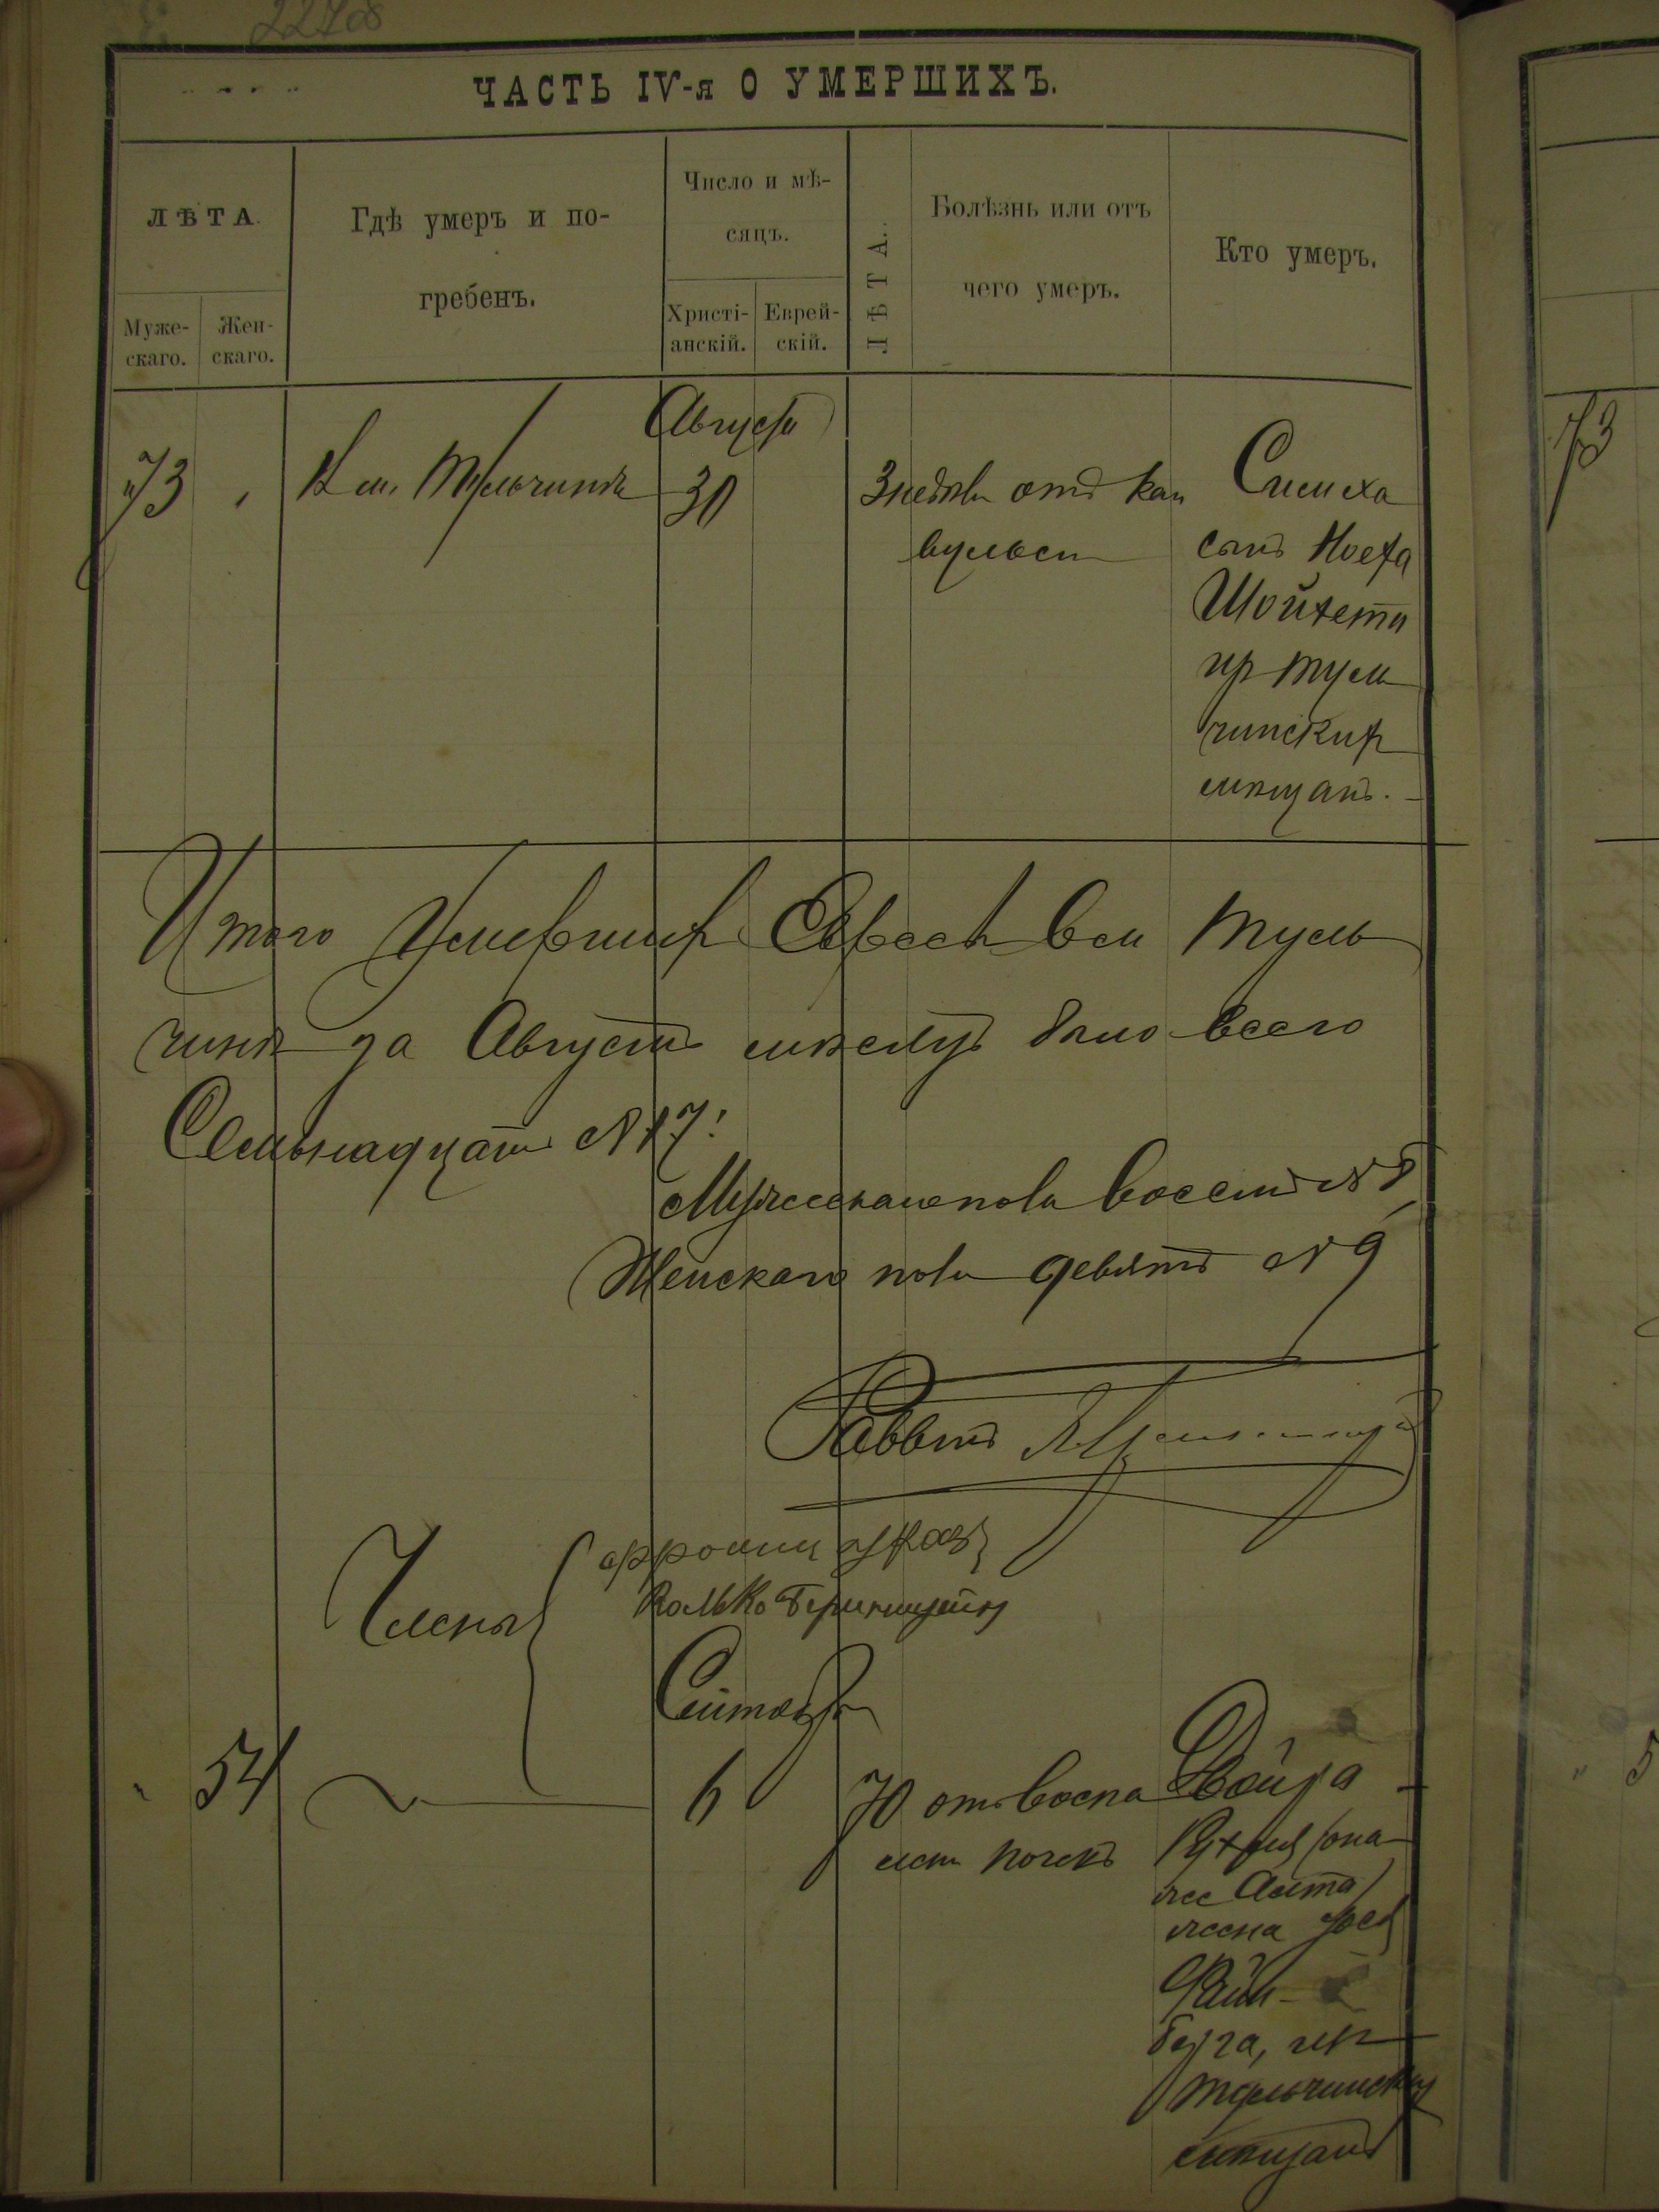 2278
ЧАСТЬ IV-я О УМЕРШИХЪ.
ЛѢТА.
Муже-
скаго.
Жен-
скаго.
Гдѣ умеръ и по-
гребенъ.
Число и мѣ-
сяцъ.
Христі-
анскій.
Еврей-
скій.
ЛѢТА.
Болѣзнь или отъ
чего умеръ.
Кто умеръ.
Августа
73 В м. Тульчинѣ 30 3 недѣли отъ кон
вульсіи
Симха
сынъ Иося
Шойхета
изъ Туль
чинскихъ
мѣщанъ.
Итого Умершихъ Евреевъ въ м Туль
чинѣ за Августъ мѣсяцъ было всего
Семьнадцать № 17.
Мужескаго пола восемь № 8
Женскаго пола девять № 9
Раввинъ
Члены
Сентября
54 6 70 отъ воспа
лен почекъ
Двойра
Рухля (она
же Алта)
жена
Файн-
берга, изъ
Тульчинских
мѣщанъ
73